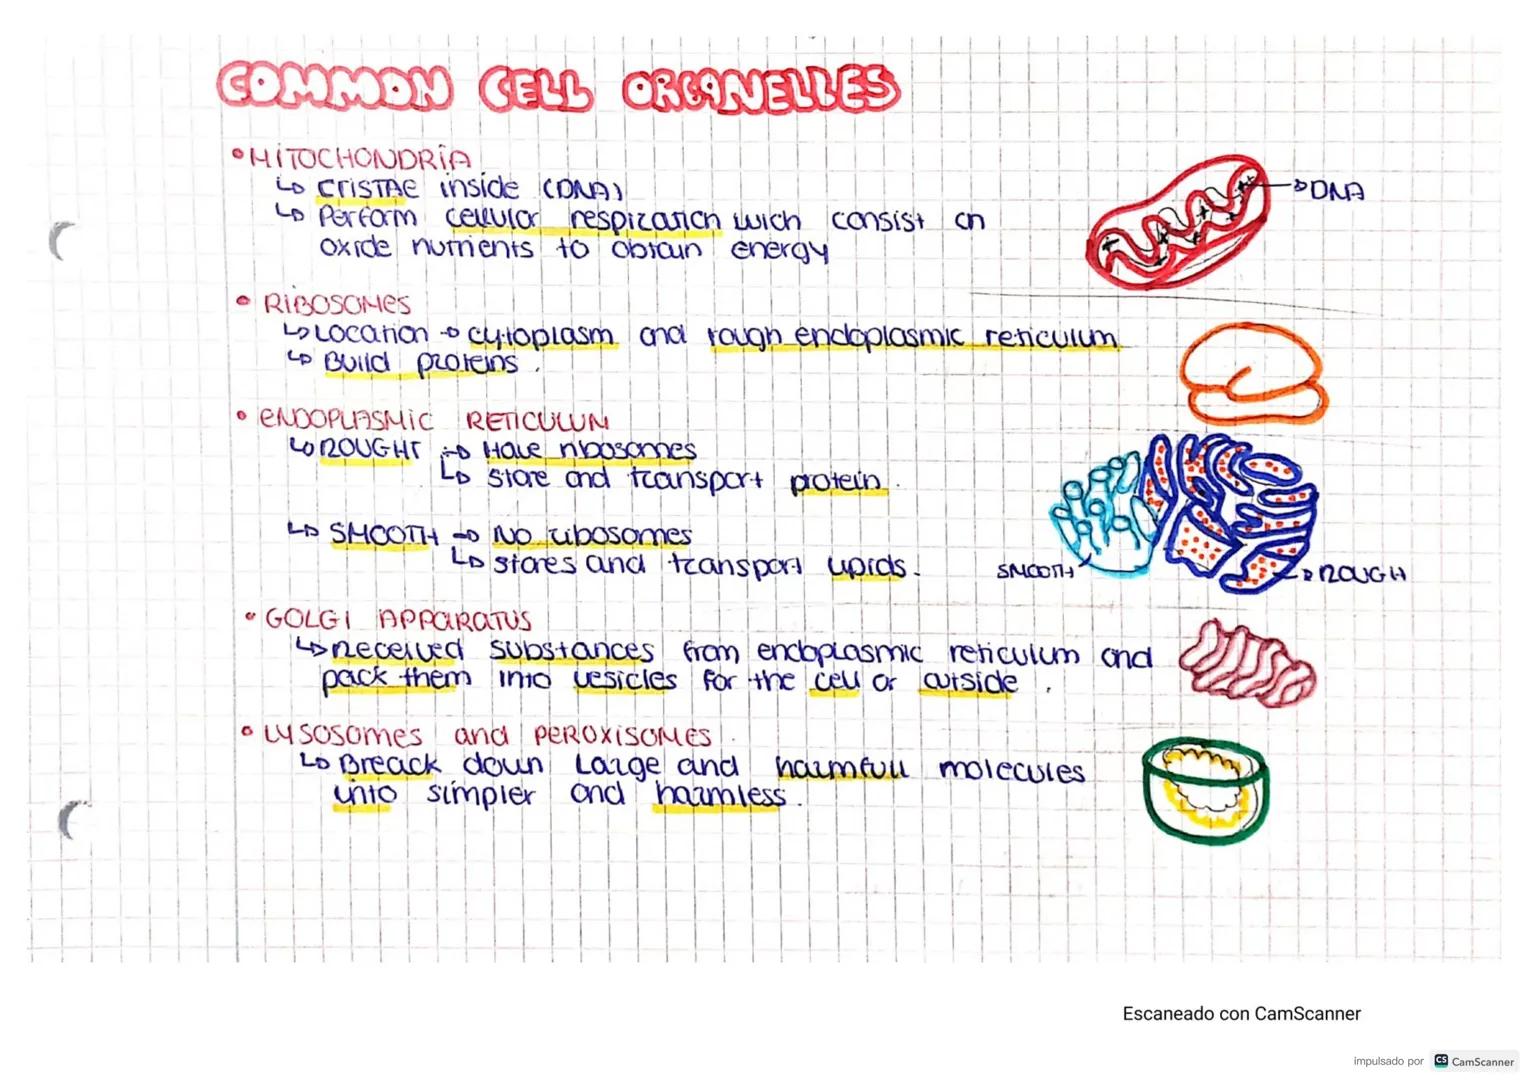 COMMON CELL ORGANELLES
• MITOCHONDRIA
↳ CRISTAE inside (DNA)
↳ Perform cellular respiration wich consist on
oxide nutrients to obtain energy
→ DNA
• RIBOSOMES
↳ Location → cytoplasm and rough endoplasmic reticulum
↳ Build proteins.
• ENDOPLASMIC RETICULUM
↳ ROUGHT → Have ribosomes
↳ store and transport protein.
↳ SMOOTH → No ribosomes
↳ stores and transport lipids.
SMOOTH
→ ROUGH
• GOLGI APPARATUS
↳ Received substances from endoplasmic reticulum and
pack them into vesicles for the cell or outside.
• LYSOSOMES and PEROXISOMES.
↳ Breack down large and harmfull molecules
into simpler and harmless.
Escaneado con CamScanner
impulsado por CS CamScanner